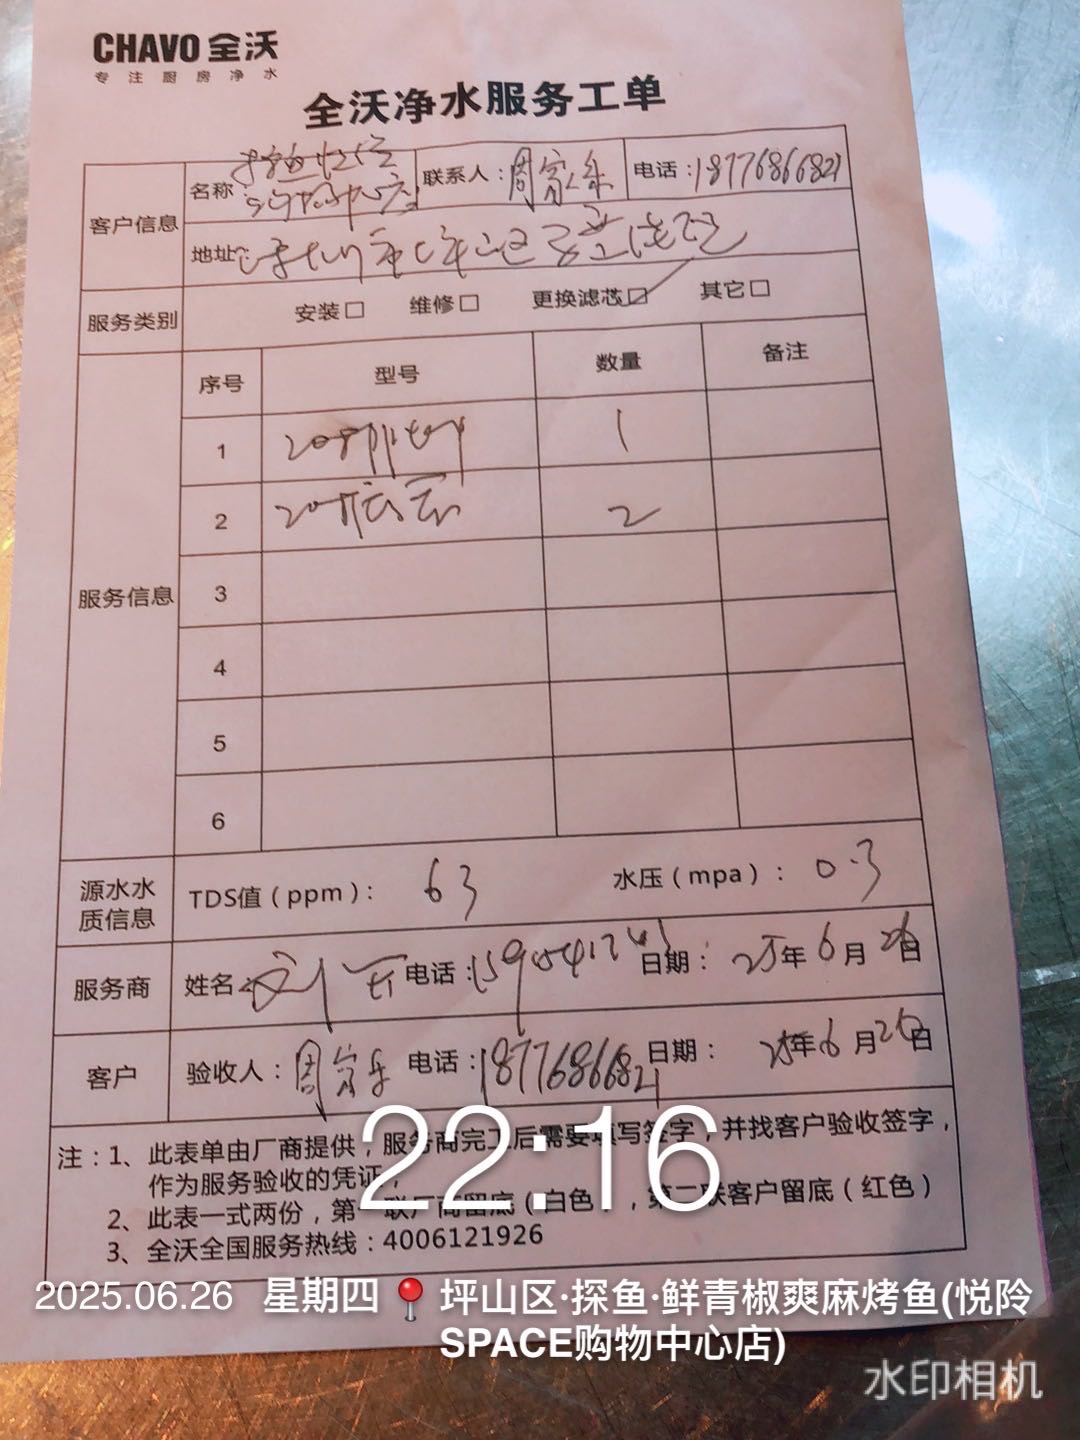 CHAVO 全沃
专注厨房净水
全沃净水服务工单
客户信息
名称: 联系人:周富乐 电话:18776866821
地址:
服务类别 安装□ 维修□ 更换滤芯☑ 其它□
服务信息 序号 型号 数量 备注
1 1
2 2
3
4
5
6
源水水质信息 TDS值(ppm): 63 水压(mpa): 0.3
服务商 姓名: 刘 电话: 日期: 25年6月26日
客户 验收人:周富乐 电话:18776866821 日期: 25年6月26日
注:1、此表单由厂商提供,服务商完工后需要填写签字,并找客户验收签字,
作为服务验收的凭证;
2、此表一式两份,第一联厂商留底(白色),第二联客户留底(红色)
3、全沃全国服务热线:4006121926
22:16
2025.06.26 星期四 坪山区·探鱼·鲜青椒爽麻烤鱼(悦阾
SPACE购物中心店)
水印相机